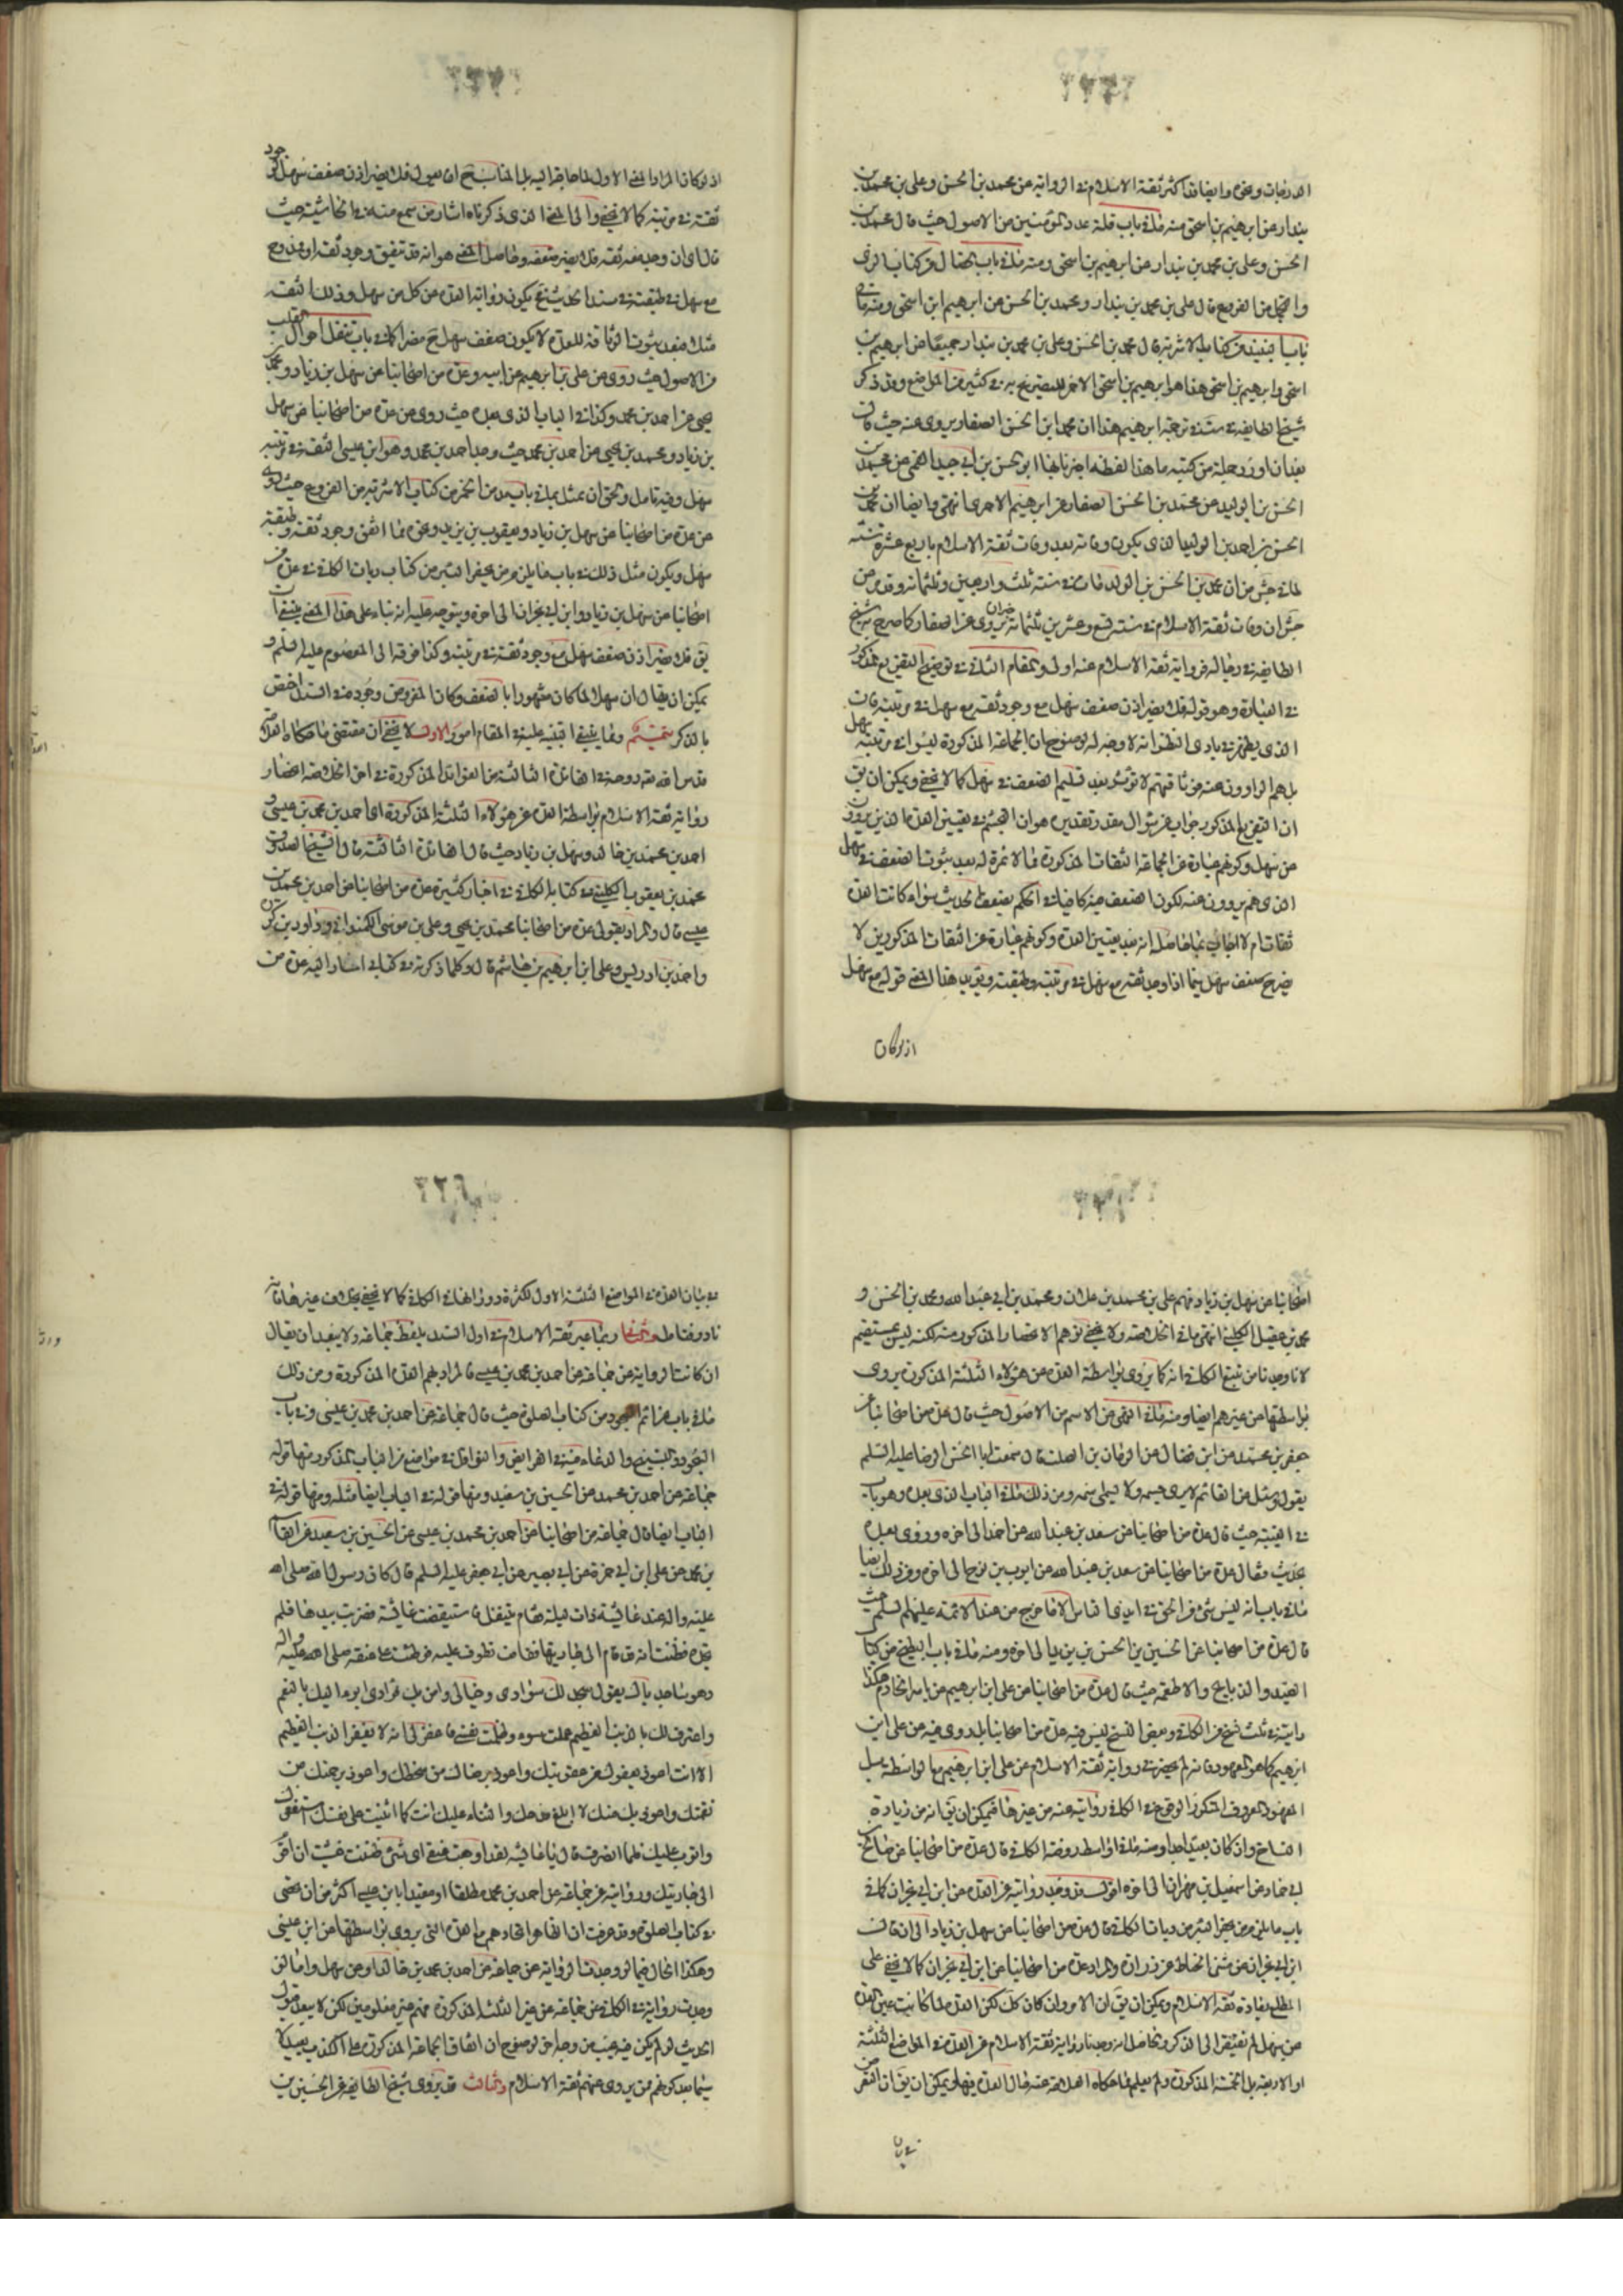 الدرجات وغيره وايضا قد اكثر ثقة الاسلام في الرواية عن محمد بن الحسن وعلي بن محمد بن
بندار عن ابرهيم بن اسحق منه ما في باب قلة عدد المؤمنين من الاصول حيث قال محمد بن
الحسن وعلي بن محمد بن بندار عن ابرهيم بن اسحق ومنه ما في باب الخضال من كتاب الزي
والتجمل من الفروع قال علي بن محمد بن بندار ومحمد بن الحسن عن ابرهيم ابن اسحق ومنه ما في
باب النبيذ من كتاب الاشربة قال محمد بن الحسن وعلي بن محمد بن بندار جميعا عن ابرهيم بن
اسحق وابرهيم بن اسحق هذا هو ابرهيم بن اسحق الاحمر للتصريح به في كثير من المواضع وقد ذكر
شيخ الطايفة في ست في ترجمة ابرهيم هذا ان محمد ابن الحسن الصفار يروي عنه حيث قال
بعد ان اورد جملة من كتبه ما هذا لفظه اخبرنا بها ابو الحسن بن ابي جيد القمي عن محمد بن
الحسن بن الوليد عن محمد بن الحسن الصفار عن ابرهيم الاحمري انتهى وايضا ان محمد بن
الحسن بن احمد بن الوليد الذي يكون وفاته بعد وفات ثقة الاسلام باربع عشرة سنة
لما في جش من ان محمد بن الحسن بن الوليد مات في سنة ثلث واربعين وثلثمائة وقد مر عن
جش ان وفات ثقة الاسلام في سنة تسع وعشرين ثلثمائة يروي عن الصفار كما صرح به شيخ
الطايفة في رجاله فرواية ثقة الاسلام عنه اولى والمقام الثالث في توضيح التفريع المذكور
في العبارة وهو قوله فلا يضر اذن ضعف سهل مع وجود ثقة مع سهل في مرتبته فان
الذي يظهر في بادي النظر انه لا وجه له لوضوح ان الجماعة المذكورة ليسوا في مرتبة سهل
بل هم الراوون عنه فوثاقتهم لا تؤثر بعد تسليم الضعف في سهل كما لا يخفى ويمكن ان يق
ان التفريع المذكور جواب عن سؤال مقدر تقديره هو ان البحث في تعيين العدة الذين يروون
عن سهل وكونهم عبارة عن الجماعة الثقات المذكورة مما لا ثمرة له بعد ثبوت الضعف في سهل
الذي هم يروون عنه لكون الضعف فيه كافيا في الحكم بضعف الحديث سواء كانت العدة
ثقات ام لا اجاب بما حاصله انه بعد تعيين العدة وكونهم عبارة عن الثقات المذكورين لا
يضر ضعف سهل فيما اذا وجد ثقة مع سهل في مرتبته وطبقته ويؤيد هذا المعنى قوله مع سهل
اذ لو كان
اذ لو كان المراد المعنى الاول لما حاجة اليه بل المناسب ح ان يقول فلا يضر اذن ضعف سهل لوجود
ثقة في مرتبته كما لا يخفى والى المعنى الذي ذكرناه اشار من سمع منه في الحاشية حيث
قال اي ان وجد معه ثقة فلا يضر ضعفه وحاصل المعنى هو انه قد يتفق وجود ثقة او ممدوح
مع سهل في طبقته في سند الحديث فح يكون رواية العدة عن كل من سهل وذلك الثقة
مثلا فبعد ثبوت الوثاقة للعدة لا يكون ضعف سهل ح مضرا كما في باب تنقل احوال القلب
من الاصول حيث روى عن علي بن ابرهيم عن ابيه وعدة من اصحابنا عن سهل بن زياد ومحمد بن
يحيى عن احمد بن محمد وكذا في الباب الذي بعده حيث روى عن عدة من اصحابنا عن سهل
بن زياد ومحمد بن يحيى عن احمد بن محمد حيث وجد احمد بن محمد وهو ابن عيسى الثقة في مرتبة
سهل وفيه تامل والحق ان يمثل بما في باب من كتاب الاشربة من الفروع حيث روى
عن عدة من اصحابنا عن سهل بن زياد ويعقوب بن يزيد وغيره مما اتفق وجود ثقة وطبقة
سهل ويكون مثل ذلك في باب ما يلزم من يحفر البئر من كتاب ديات الكافي في عدة من
اصحابنا عن سهل بن زياد وابن ابي نجران الى اخره ويتوجه عليه انه بناء على هذا المعنى ينبغي ان
يق فلا يضر اذن ضعف سهل مع وجود ثقة في مرتبته وكذا من فوقه الى المعصوم عليه السلم و
يمكن ان يقال ان سهلا لما كان مشهورا بالضعف وكان المفروض وجوده في السند اختص
بالذكر تتميم ومما ينبغي التنبيه عليه في المقام امور الاول لا يخفى ان مقتضى ما حكاه العلامة
قدس الله روحه في الفائدة الثالثة من الفوائد المذكورة في اخر الخلاصة اختصار
رواية ثقة الاسلام بواسطة العدة عن هؤلاء الثلثة المذكورة اي احمد بن محمد بن عيسى و
احمد بن محمد بن خالد وسهل بن زياد حيث قال الفائدة الثالثة قال الشيخ الصدوق
محمد بن يعقوب الكليني في كتابه الكافي في اخبار كثيرة عدة من اصحابنا عن احمد بن محمد بن
عيسى قال والمراد بقولي عدة من اصحابنا محمد بن يحيى وعلي بن موسى الكمنداني وداود بن كورة
واحمد بن ادريس وعلي ابن ابرهيم بن هاشم قال وكلما ذكرته في كتابي المشار اليه عدة من
اصحابنا عن سهل بن زياد فهم علي بن محمد بن علان ومحمد بن ابي عبد الله ومحمد بن الحسن و
محمد بن عقيل الكليني انتهى ما في الخلاصة ولا يخفى توهم الاختصار المذكور منه لكنه ليس بمستقيم
لانا وجدنا من تتبع الكافي انه كما يروي بواسطة العدة عن هؤلاء الثلثة المذكورة يروي
بواسطتها عن غيرهم ايضا ومنه ما في النهي عن الاسم من الاصول حيث قال عدة من اصحابنا عن
جعفر بن محمد عن ابن فضال عن الريان بن الصلت قال سمعت ابا الحسن الرضا عليه السلم
يقول وسئل عن القائم لا يرى جسمه ولا يسمى باسمه ومن ذلك ما في الباب الذي بعده وهو باب
في الغيبة حيث قال عدة من اصحابنا عن سعد بن عبد الله عن احمد الى اخره وروى بعده
بحديث فقال عدة من اصحابنا عن سعد بن عبد الله عن ايوب بن نوح الى اخره ومن ذلك ايضا
ما في باب انه ليس شئ من الحق في ايدي الناس الا ما خرج من عند الائمة عليهم السلم حيث
قال عدة من اصحابنا عن الحسين بن الحسن بن يزيد الى اخره ومنه ما في باب البطيخ من كتاب
الصيد والذبايح والاطعمة حيث قال عدة من اصحابنا عن علي ابن ابرهيم عن ياسر الخادم هكذا
رايته في ثلث نسخ من الكافي وبعض النسخ ليس فيه عدة من اصحابنا بل روى فيه عن علي ابن
ابرهيم كما هو المعهود فانه لم يحضرني رواية ثقة الاسلام عن علي ابن ابرهيم مع الواسطة بل
المعهود المعروف المتكرر الوقوع في الكافي روايته عنه من غيرها فيمكن ان يق انه من زيادة
النساخ وان كان بعيدا جدا ومنه ما في اواسط روضة الكافي قال عدة من اصحابنا عن صالح بن
ابي حماد عن اسمعيل بن مهران الى اخره اقول قد وجد روايته عن العدة عن ابن ابي نجران كما في
باب ما يلزم من يحفر البئر من ديات الكافي قال عدة من اصحابنا عن سهل بن زياد الى ان قال
ابن ابي نجران عن مثنى الحناط عن زرارة والمراد عدة من اصحابنا عن ابن ابي نجران كما لا يخفى على
المطلع بعادة ثقة الاسلام ويمكن ان يق ان الامر وان كان كك لكن العدة لما كانت عين العدة
عن سهل لم تفتقر الى الذكر والحاصل انه وجدنا رواية ثقة الاسلام عن العدة في المواضع الثلثة
او الاربعة بل الخمسة المذكورة ولم يعلم مما حكاه العلامة عنه حال العدة فيها ويمكن ان يق ان الغرض
في بيان
في بيان العدة في المواضع الثلثة الاول لكثرة دورانها في الكافي كما لا يخفى بخلاف غيرها فانه
نادر فتامل وثانيها ربما عبر ثقة الاسلام في اول السند بلفظ جماعة ولا يبعد ان يقال
ان كانت الرواية عن جماعة عن احمد بن محمد بن عيسى فالمراد بهم العدة المذكورة ومن ذلك
ما في باب عزائم السجود من كتاب الصلوة حيث قال جماعة عن احمد بن محمد بن عيسى وفي باب
السجود والتسبيح والدعاء فيه في الفرايض والنوافل في مواضع من الباب المذكور منها قوله
جماعة عن احمد بن محمد عن الحسين بن سعيد ومنها قوله في الباب ايضا مثله ومنها قوله في
الباب ايضا قال جماعة من اصحابنا عن احمد بن محمد بن عيسى عن الحسين بن سعيد عن القاسم
بن محمد عن علي ابن ابي حمزة عن ابي بصير عن ابي جعفر عليه السلم قال كان رسول الله صلى الله
عليه واله عند عائشة ذات ليلة فقام يتنفل فاستيقضت عائشة فضربت بيدها فلم
تجده فظنت انه قد قام الى جاريتها فقامت تطوف عليه فوطئت على عنقه صلى الله عليه واله
وهو ساجد باك يقول سجد لك سوادي وخيالي وامن بك فؤادي ابوء اليك بالنعم
واعترف لك بالذنب العظيم عملت سوء وظلمت نفسي فاغفر لي انه لا يغفر الذنب العظيم
الا انت اعوذ بعفوك من عقوبتك واعوذ برضاك من سخطك واعوذ برحمتك من
نقمتك واعوذ بك منك لا ابلغ مدحك والثناء عليك انت كما اثنيت على نفسك استغفرك
واتوب عليك فلما انصرف قال يا عائشة لقد اوجعت عنقي اي شئ ظننت خشيت ان اقوم
الى جاريتك وروايته عن جماعة عن احمد بن محمد مطلقا او مقيدا بابن عيسى اكثر من ان يحصى
في كتاب الصلوة وقد عرفت ان الظاهر اتحادهم مع العدة التي يروي بواسطتها عن ابن عيسى
وهكذا الحال فيما لو وجدت الرواية عن جماعة عن احمد بن محمد بن خالد او عن سهل واما لو
وجدت رواية في الكافي عن جماعة عن غير الثلثة المذكورة فهم غير معلومين لكن لا يبعد قبول
الحديث لو لم يكن فيه عيب من وجه اخر لوضوح ان اتفاق الجماعة المذكورة على الكذب بعيد لا
سيما بعد كونهم ممن يروي عنهم ثقة الاسلام وثالث قد يروي شيخ الطايفة عن الحسين بن